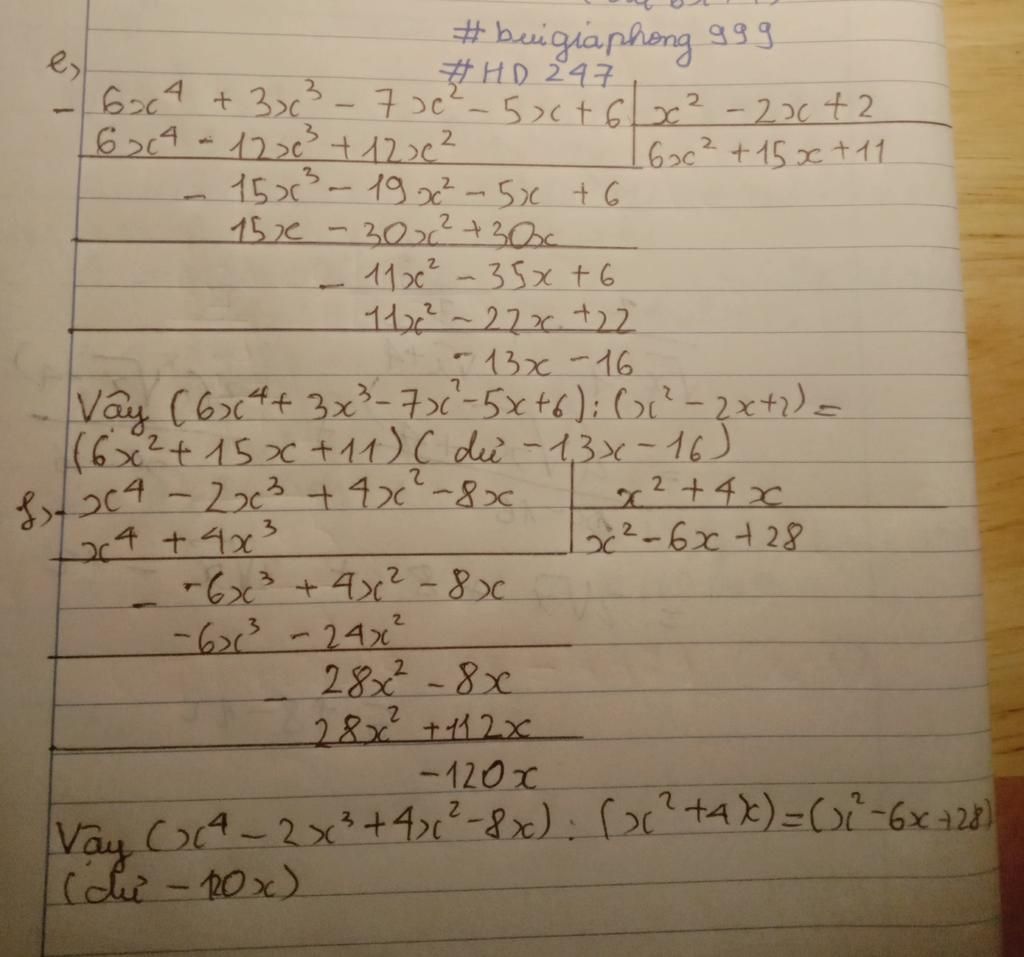 # buigiaphong 999
# HD 247
e,
- 6x⁴ + 3x³ - 7x² - 5x + 6 | x² - 2x + 2
6x⁴ - 12x³ + 12x² | 6x² + 15x + 11
- 15x³ - 19x² - 5x + 6
15x - 30x² + 30x
- 11x² - 35x + 6
11x² - 22x + 22
- 13x - 16
Vậy (6x⁴ + 3x³ - 7x² - 5x + 6) : (x² - 2x + 2) =
(6x² + 15x + 11) ( dư - 13x - 16)
f, - x⁴ - 2x³ + 4x² - 8x | x² + 4x
x⁴ + 4x³ | x² - 6x + 28
- -6x³ + 4x² - 8x
-6x³ - 24x²
- 28x² - 8x
28x² + 112x
-120x
Vậy (x⁴ - 2x³ + 4x² - 8x) : (x² + 4x) = (x² - 6x + 28)
(dư - 120x)